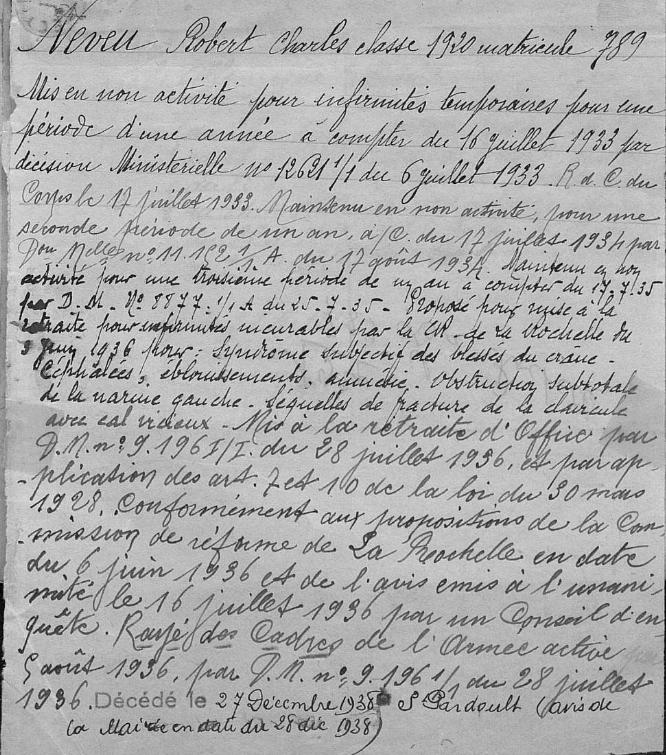 Neveu Robert Charles classe 1920 matricule 789
Mis en non activité pour infirmités temporaires pour une
période d'une année à compter du 16 juillet 1933 par
décision Ministérielle no 12621 1/1 du 6 juillet 1933. R. d. C. du
Corps le 17 juillet 1933. Maintenu en non activité, pour une
seconde période de un an, à/C. du 17 juillet 1934 par
Don Melle no 11.152 1/1 A. du 17 août 1934. Maintenu en non
activité pour une troisième période de un an à compter du 17.7.35
par D. M. No 8877. 1/1 A du 25-7-35 - Proposé pour mise à la
retraite pour infirmités incurables par la CR. de La Rochelle du
juin 1936 pour: Syndrome subjectif des blessés du crane -
Céphalées, éblouissements, amnésie. Obstruction subtotale
de la narine gauche - Séquelles de fracture de la clavicule
avec cal vicieux - Mis à la retraite d'Office par
D.M. no 9.196 I/I. du 28 juillet 1936, et par ap-
-plication des art. 7 et 10 de la loi du 30 mars
1928, conformément aux propositions de la Com-
-mission de réforme de La Rochelle en date
du 6 juin 1936 et de l'avis emis à l'unani-
mité le 16 juillet 1936 par un Conseil d'en-
quête. Rayé des Cadres de l'Armée active
5 août 1936, par D.M. no 9.196 1/1 du 28 juillet
1936. Décédé le 27 Décembre 1938 St Pardoult (avis de
la Mairie en date du 28 dec 1938)